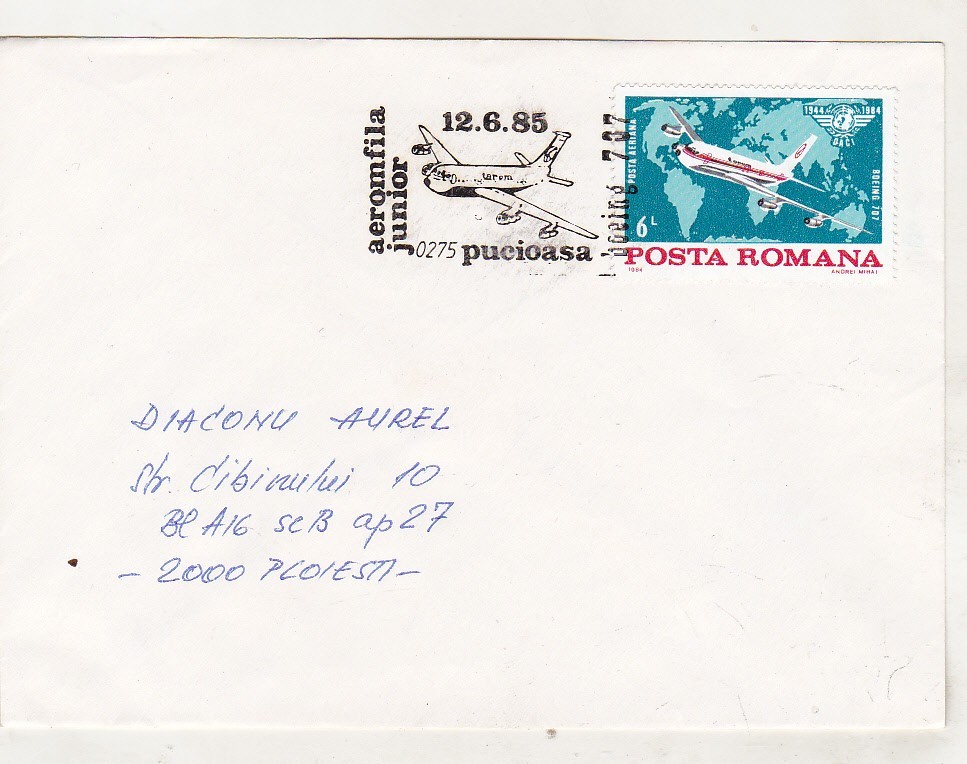 aeromfila
junior
12.6.85
tarom
0275 pucioasa
boeing 707
POSTA AERIANA
1944 1984
OACI
BOEING 707
6 L
POSTA ROMANA
1984 ANDREI MIHAI
DIACONU AUREL
Str. Cibinului 10
Bl A16 sc B ap 27
- 2000 PLOIESTI -